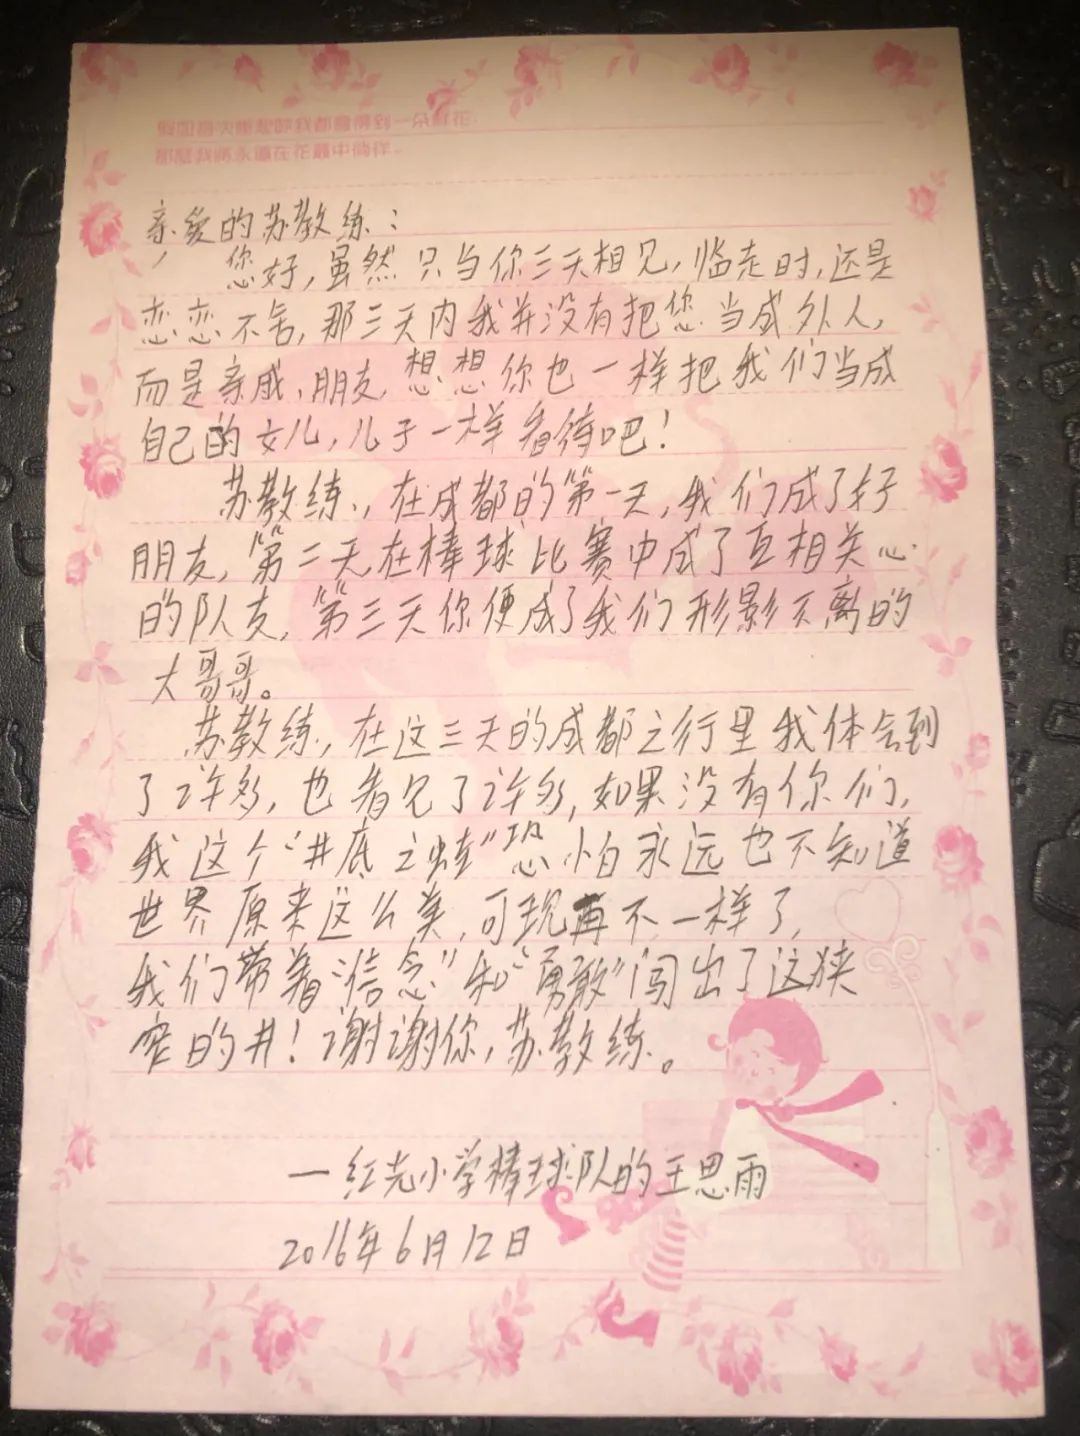 假如每次想起你我都會得到一朵鮮花，
那麼我將永遠在花叢中徜徉。
亲爱的苏教练：
您好，虽然只与你三天相见，临走时，还是
恋恋不舍，那三天内我并没有把您当成外人，
而是亲戚，朋友，想想你也一样把我们当成
自己的女儿，儿子一样看待吧！
苏教练，在成都的第一天，我们成了好
朋友，第二天在棒球比赛中成了互相关心
的队友，第三天你便成了我们形影不离的
大哥哥。
苏教练，在这三天的成都之行里我体会到
了许多，也看见了许多，如果没有你们，
我这个“井底之蛙”恐怕永远也不知道
世界原来这么美，可现再不一样了，
我们带着“信念”和“勇敢”闯出了这狭
窄的井！谢谢你，苏教练。
一红光小学棒球队的王思雨
2016年6月12日